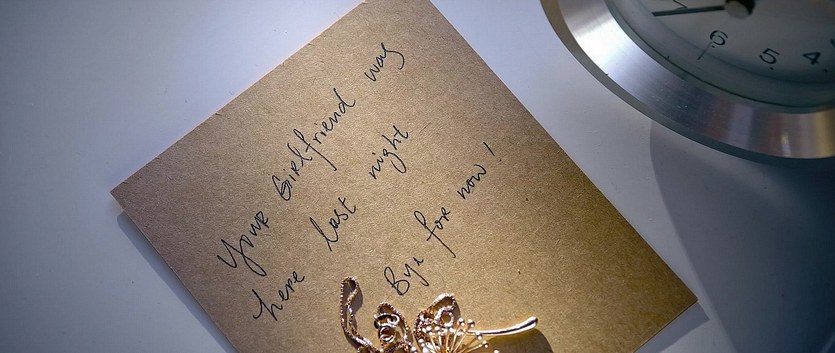 Your Girlfriend was
here last night
Bye for now!
6 5 4